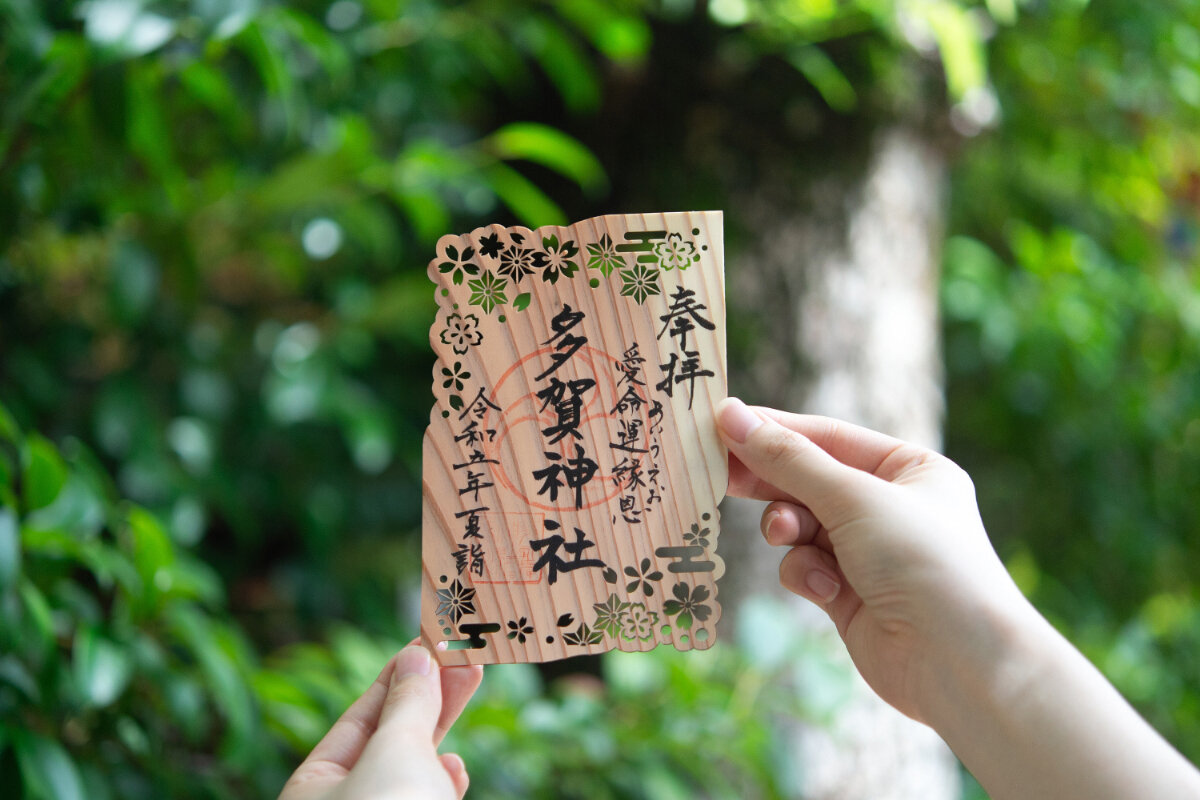 奉拝
愛命運縁恩
あいうえお
多賀神社
令和五年夏詣